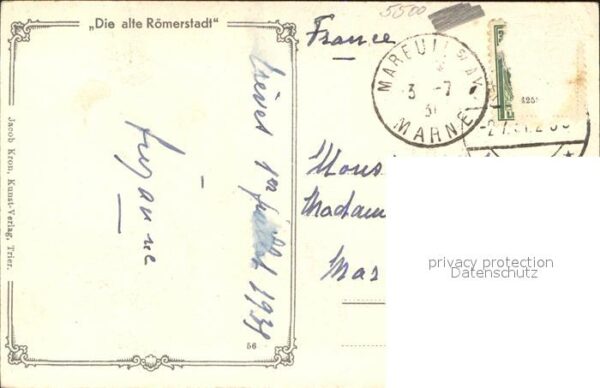 „Die alte Römerstadt"
5500
France
MAREUIL S/ AY
3 -7
31
MARNE
125
Trèves 1er juillet 1931
Suzanne
Madam
Mar
privacy protection
Datenschutz
Jacob Kron, Kunst-Verlag, Trier.
56